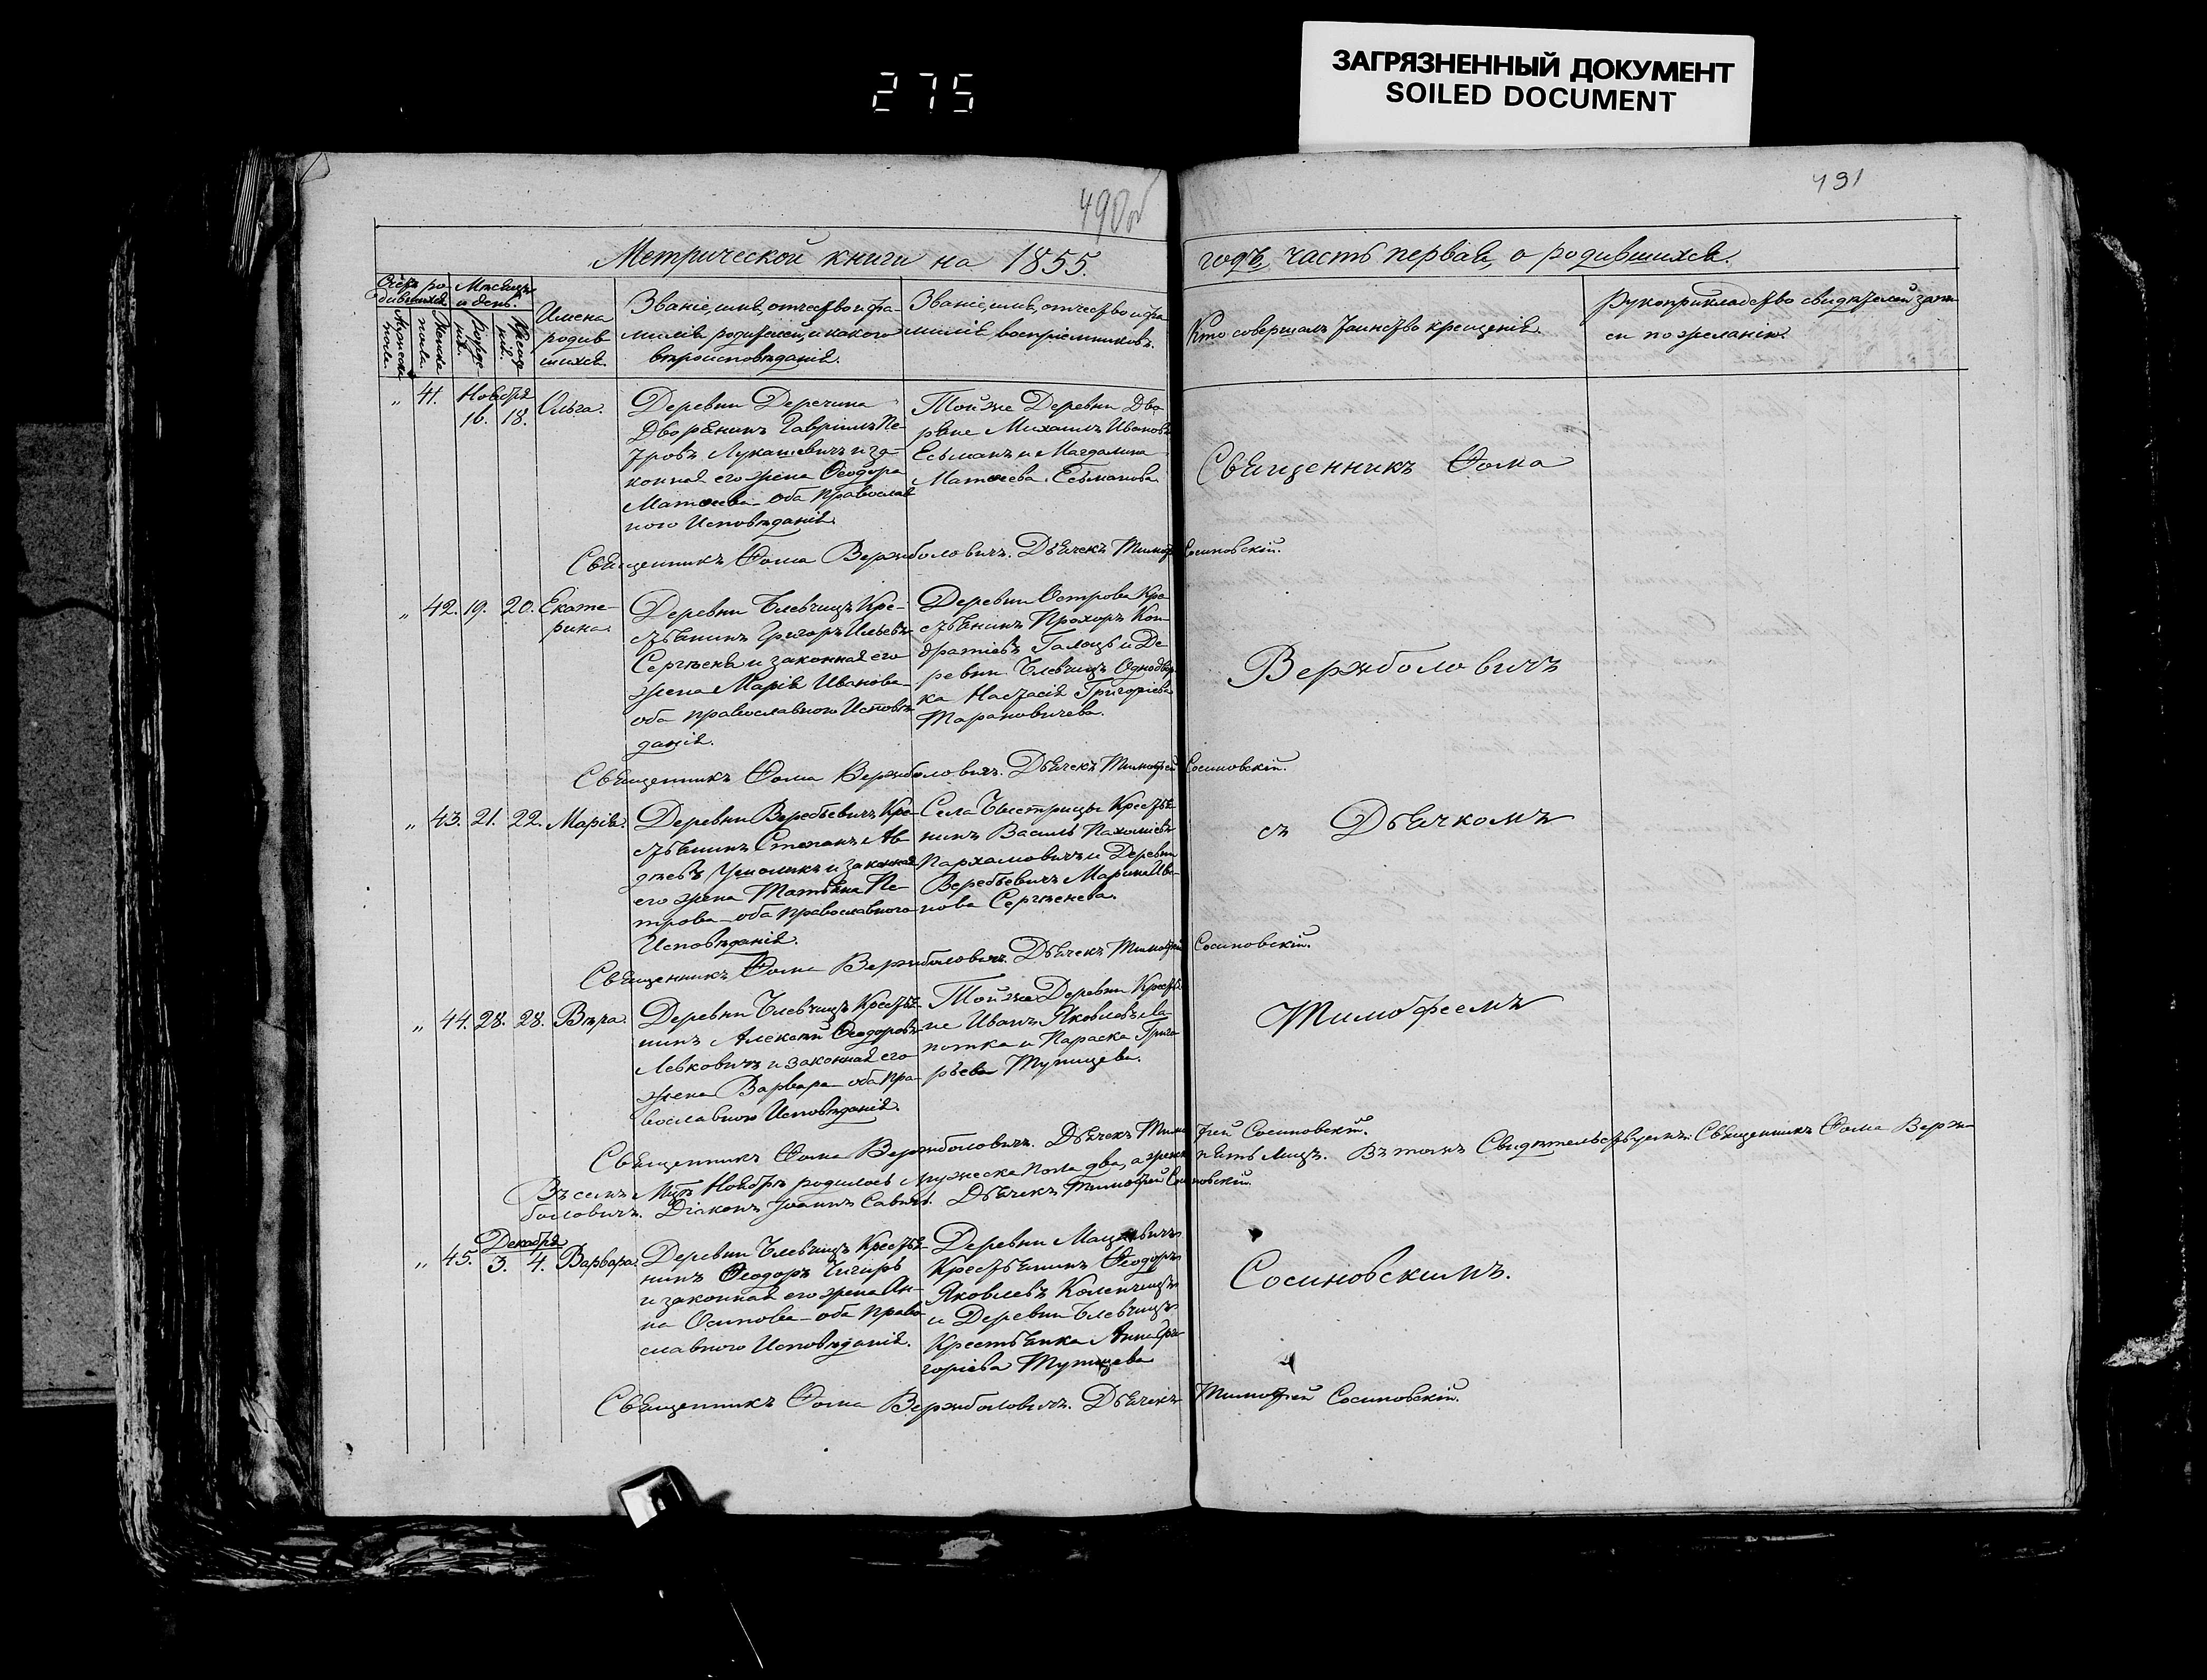 ЗАГРЯЗНЕННЫЙ ДОКУМЕНТ
SOILED DOCUMENT
275
490об
491
Метрической книги на 1855.
годъ, часть первая, о родившихся.
Счетъ родившихся
Мѣсяцъ и день.
Мужеска пола.
Женска пола.
Рожденія.
Крещенія.
Имена родившихся.
Званіе, имя, отчество и фа-
милія родителей, и какого
вѣроисповѣданія.
Званіе, имя, отчество и фа-
милія воспріемниковъ.
Кто совершалъ таинство крещенія.
Рукоприкладство свидѣтелей запи-
си по желанію.
„ 41. Ноября 16. 18. Ольга.
Деревни Деречина
Дворянинъ Гавріилъ Пе-
тровъ Лукашевичъ и за-
конная его жена Ѳеодора
Матѳеева оба Православ
ного Исповѣданія.
Той же Деревни Дво-
ряне Михаилъ Ивановъ
Есьманъ и Магдалина
Матѳеева Есьманова.
Священникъ Ѳома
Священникъ Ѳома Вержболовичъ. Дьячекъ Тимоѳей Сосиновскій.
„ 42. 19. 20. Екате-
рина.
Деревни Блевчицъ Кре-
стьянинъ Григоръ Ильевъ
Сергѣеня и законная его
жена Марія Иванова
оба православного Исповѣ-
данія.
Деревни Острова Кре-
стьянинъ Прохоръ Кон-
дратіевъ Галецъ и Де-
ревни Блевчицъ Однодвор
ка Настасія Григоріева
Тарановичева.
Вержболовичъ
Священникъ Ѳома Вержболовичъ. Дьячекъ Тимоѳей Сосиновскій.
„ 43. 21. 22. Марія.
Деревни Веребьевичъ Кре-
стьянинъ Степанъ Ав-
дѣевъ и законная
его жена Татьяна Пе-
трова оба православного
Исповѣданія.
Села Быстрицы Крестья
нинъ Василь Пахоміевъ
Пархамовичъ и Деревни
Веребьевичъ Марина Ива-
нова Сергѣенева.
съ Дьячкомъ
Священникъ Ѳома Вержболовичъ. Дьячекъ Тимоѳей Сосиновскій.
„ 44. 28. 28. Вѣра.
Деревни Блевчицъ Крестья-
нинъ Алексѣй Ѳеодоровъ
Левковичъ и законная его
жена Варвара оба пра-
вославного Исповѣданія.
Той же Деревни Крестья
не Иванъ Яковлевъ Ла-
потка и Параска Григо
рьева Тупицева.
Тимоѳеемъ
Священникъ Ѳома Вержболовичъ. Дьячекъ Тимоѳей Сосиновскій.
Въ семъ М-цѣ Ноябрѣ родилось мужеска пола два, а женска пять лицъ. Въ томъ Свидѣтельствуемъ: Священникъ Ѳома Верж-
боловичъ. Діаконъ Іоаннъ Савичъ. Дьячекъ Тимоѳей Сосиновскій.
„ 45. Декабря 3. 4. Варвара.
Деревни Блевчицъ Крестья-
нинъ Ѳеодоръ Чигирь
и законная его жена Ан-
на Осипова оба Право
славного Исповѣданія.
Деревни
Крестьянинъ Ѳеодоръ
Яковлевъ Коленчицъ
и Деревни Блевчицъ
Крестьянка Анна Гри-
горіева Тупицева
Сосиновскимъ.
Священникъ Ѳома Вержболовичъ. Дьячекъ Тимоѳей Сосиновскій.